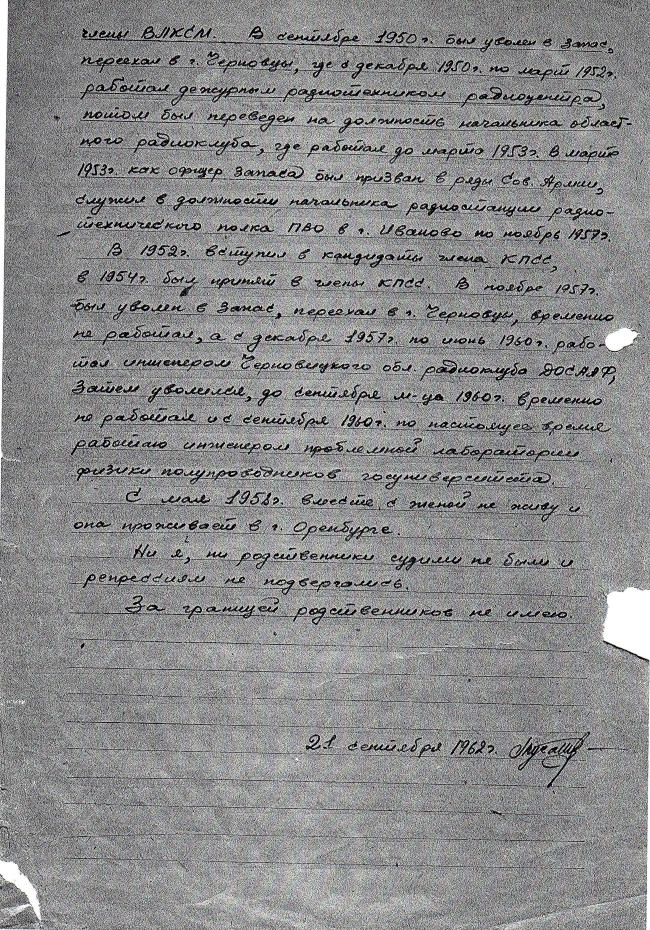 члены ВЛКСМ. В сентябре 1950г. был уволен в запас,
переехал в г. Черновцы, где с декабря 1950г. по март 1952г.
работал дежурным радиотехником радиоцентра,
потом был переведен на должность начальника област-
ного радиоклуба, где работал до марта 1953г. В марте
1953г. как офицер запаса был призван в ряды Сов. Армии,
служил в должности начальника радиостанции радио-
технического полка ПВО в г. Иваново по ноябрь 1957г.
В 1952г. вступил в кандидаты члена КПСС,
в 1954г. был принят в члены КПСС. В ноябре 1957г.
был уволен в запас, переехал в г. Черновцы, временно
не работал, а с декабря 1957г. по июнь 1960г. рабо-
тал инженером Черновицкого обл. радиоклуба ДОСААФ,
Затем уволился, до сентября м-ца 1960г. временно
не работал и с сентября 1960г. по настоящее время
работаю инженером проблемной лаборатории
физики полупроводников госуниверситета.
С мая 1958г. вместе с женой не живу и
она проживает в г. Оренбурге.
Ни я, ни родственники судимы не были и
репрессиям не подвергались.
За границей родственников не имею.
21 сентября 1962г.